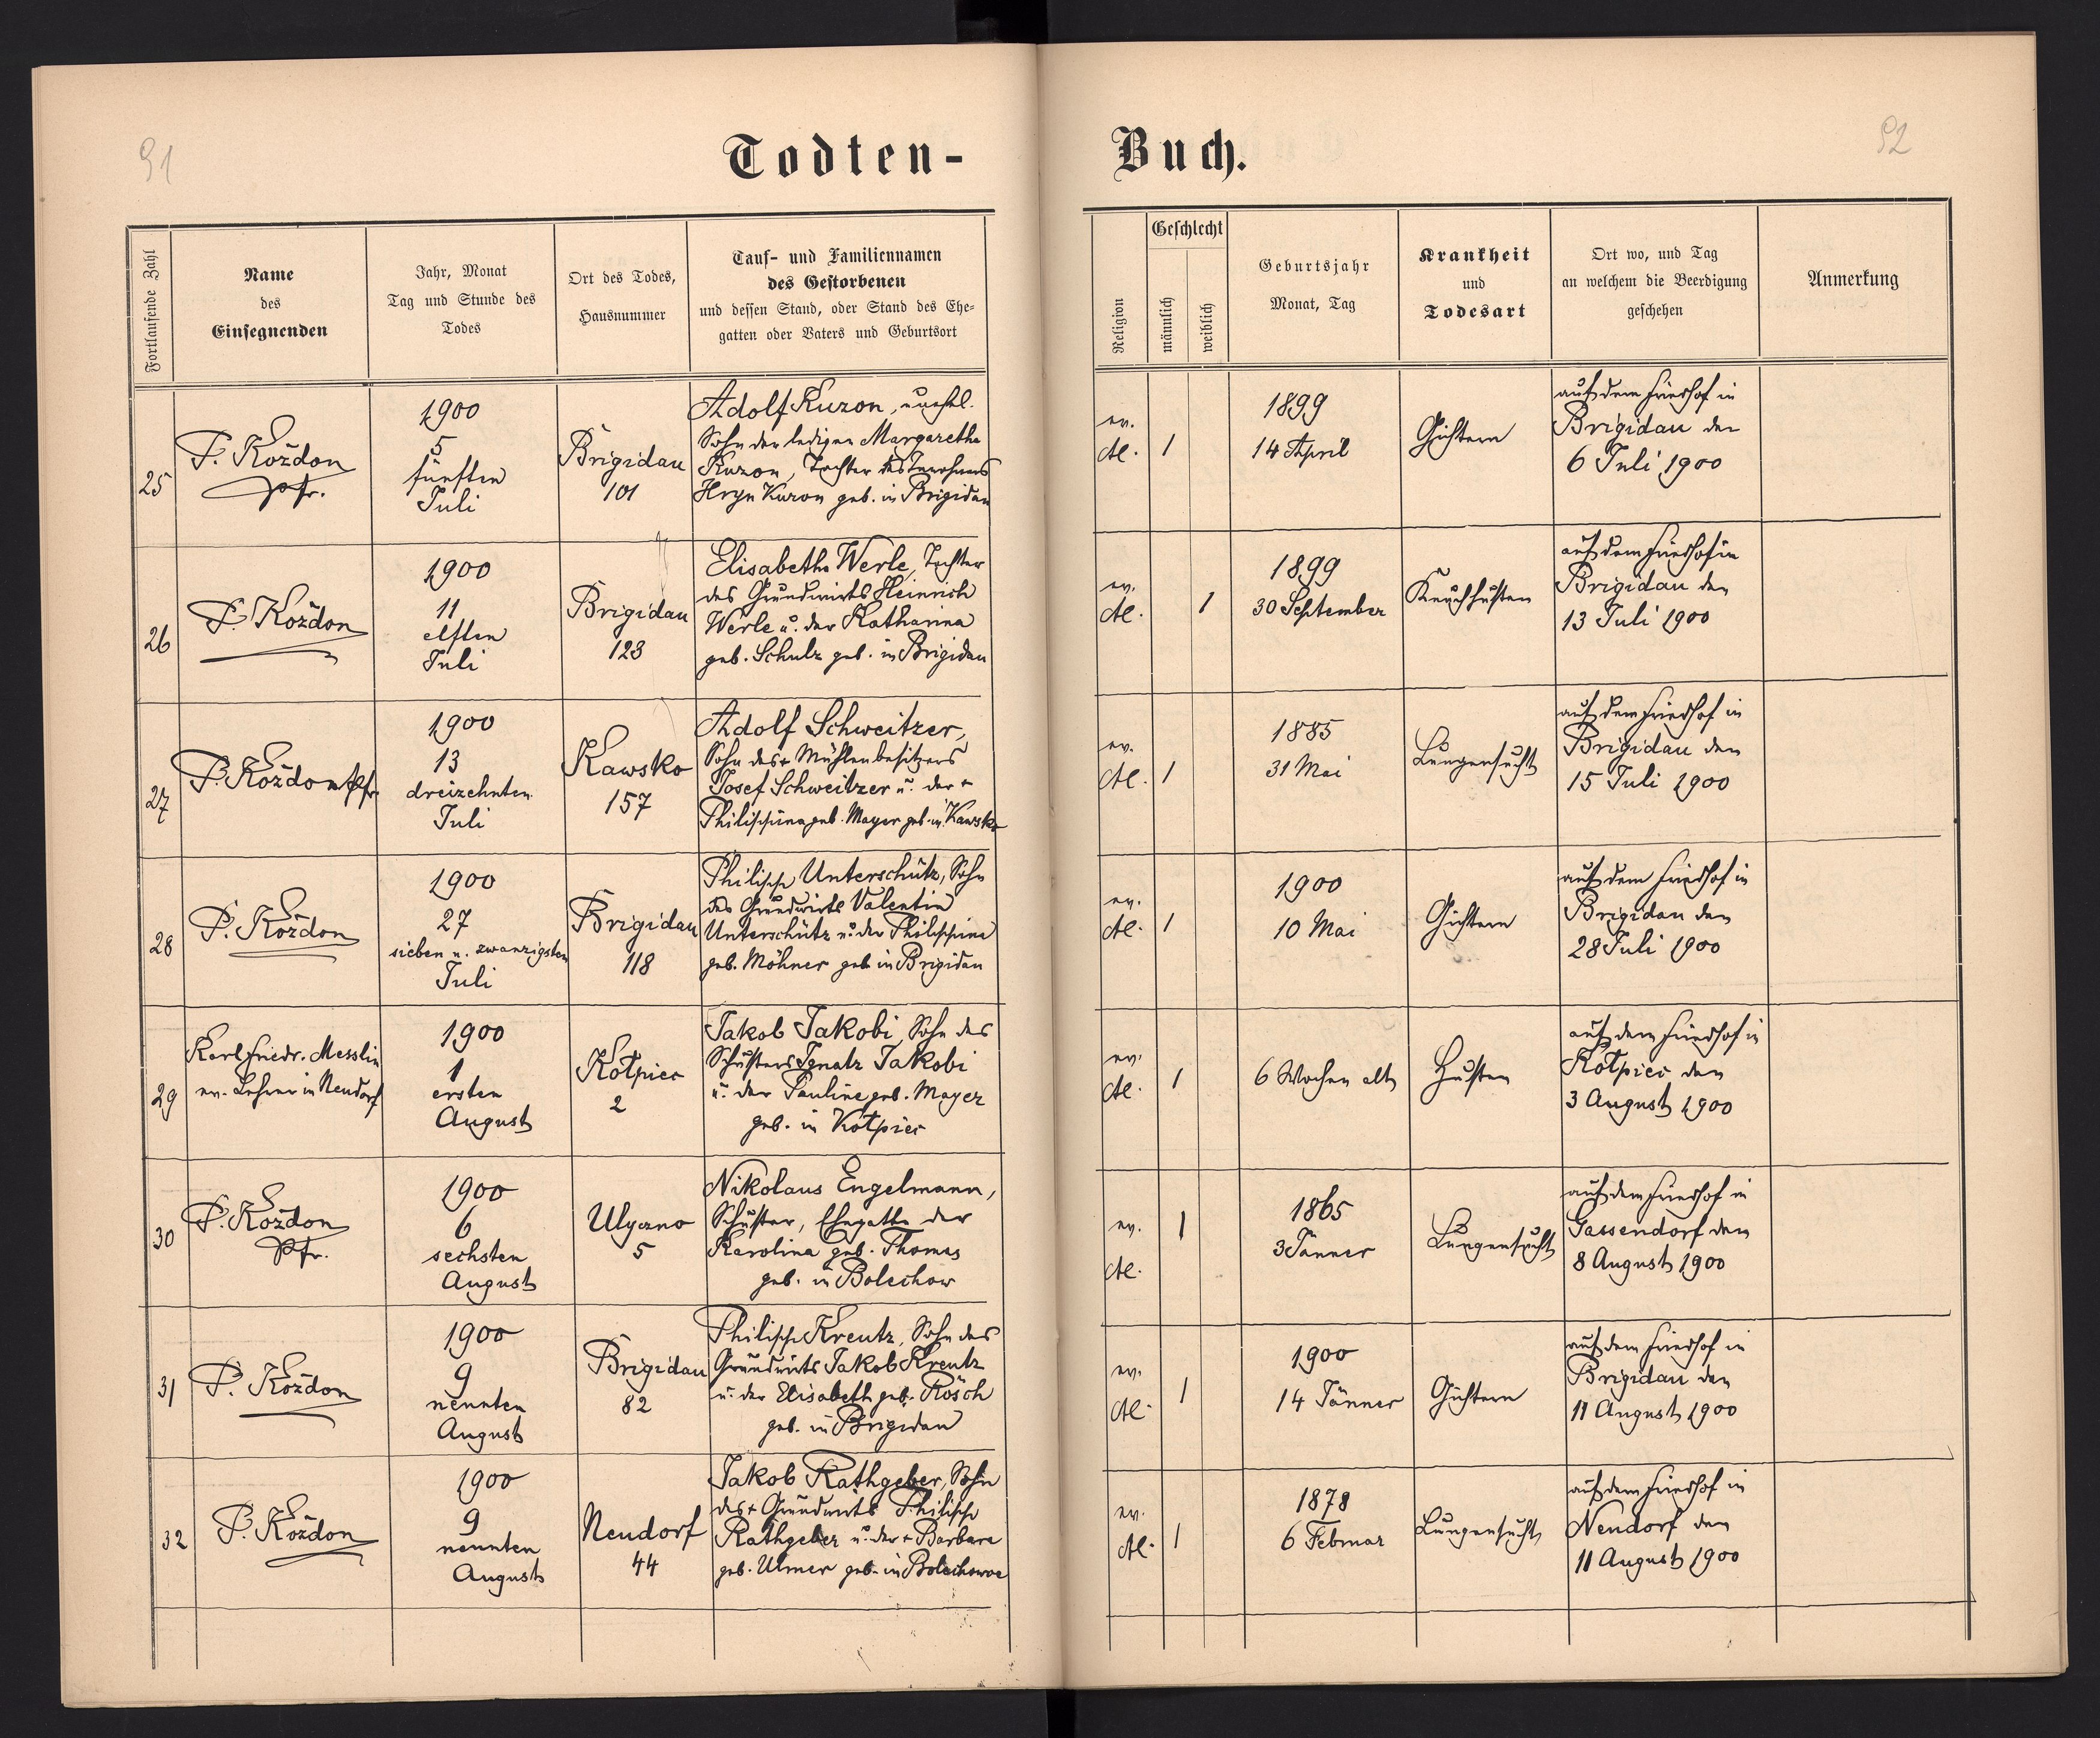 91
Todten-
Fortlaufende Zahl
Name
des
Einsegnenden
Jahr, Monat
Tag und Stunde des
Todes
Ort des Todes,
Hausnummer
Tauf- und Familiennamen
des Gestorbenen
und dessen Stand, oder Stand des Ehe-
gatten oder Vaters und Geburtsort
25
P. Koždon
Pfr.
1900
5
fünften
Juli
Brigidau
101
Adolf Kuzon, unehel.
Sohn der ledigen Margaretha
Kuzon, Tochter des Inwohners
Hryn Kuzon geb. in Brigidau
26
P. Koždon
1900
11
elften
Juli
Brigidau
123
Elisabetha Werle, Tochter
des Grundwirts Heinrich
Werle u. der Katharina
geb. Schulz geb. in Brigidau
27
P. Koždon Pfr.
1900
13
dreizehnten
Juli
Kawsko
157
Adolf Schweitzer,
Sohn des + Mühlenbesitzers
Josef Schweitzer u. der +
Philippina geb. Mayer geb. in Kawsko
28
P. Koždon
1900
27
sieben u. zwanzigsten
Juli
Brigidau
118
Philipp Unterschütz, Sohn
des Grundwirts Valentin
Unterschütz u. der Philippina
geb. Möhner geb. in Brigidau
29
Karl Friedr. Messlin
ev. Lehrer in Neudorf
1900
1
ersten
August
Kotpiec
2
Jakob Jakobi, Sohn des
Schusters Ignatz Jakobi
u. der Pauline geb. Mayer
geb. in Kotpiec
30
P. Koždon
Pfr.
1900
6
sechsten
August
Ulyczno
5
Nikolaus Engelmann,
Schuster, Ehegatte der
Karolina geb. Thomas
geb. in Bolechow
31
P. Koždon
1900
9
neunten
August
Brigidau
82
Philipp Kreutz, Sohn des
Grundwirts Jakob Kreutz
u. der Elisabeth geb. Rösch
geb. in Brigidau
32
P. Koždon
1900
9
neunten
August
Neudorf
44
Jakob Rathgeber, Sohn
des + Grundwirts Philipp
Rathgeber u. der + Barbara
geb. Ulmer geb. in Bolechowce
92
Buch.
Religion
Geschlecht
männlich
weiblich
Geburtsjahr
Monat, Tag
Krankheit
und
Todesart
Ort wo, und Tag
an welchem die Beerdigung
geschehen
Anmerkung
ev.
AC.
1
1899
14 April
Gichtern
auf dem Friedhof in
Brigidau den
6 Juli 1900
ev.
AC.
1
1899
30 September
Keuchhusten
auf dem Friedhof in
Brigidau den
13 Juli 1900
ev.
AC.
1
1885
31 Mai
Lungensucht
auf dem Friedhof in
Brigidau den
15 Juli 1900
ev.
AC.
1
1900
10 Mai
Gichtern
auf dem Friedhof in
Brigidau den
28 Juli 1900
ev.
AC.
1
6 Wochen alt
Husten
auf dem Friedhof in
Kotpiec den
3 August 1900
ev.
AC.
1
1865
3 Jänner
Lungensucht
auf dem Friedhof in
Gassendorf den
8 August 1900
ev.
AC.
1
1900
14 Jänner
Gichtern
auf dem Friedhof in
Brigidau den
11 August 1900
ev.
AC.
1
1878
6 Februar
Lungensucht
auf dem Friedhof in
Neudorf den
11 August 1900